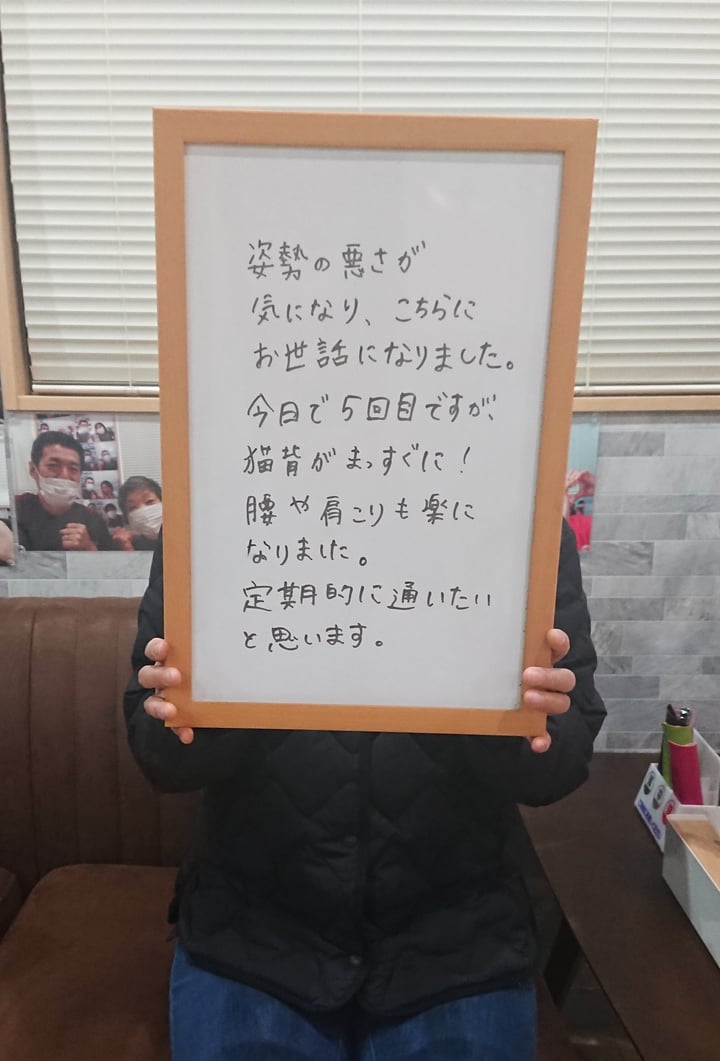 姿勢の悪さが
気になり、こちらに
お世話になりました。
今日で5回目ですが、
猫背がまっすぐに!
腰や肩こりも楽に
なりました。
定期的に通いたい
と思います。